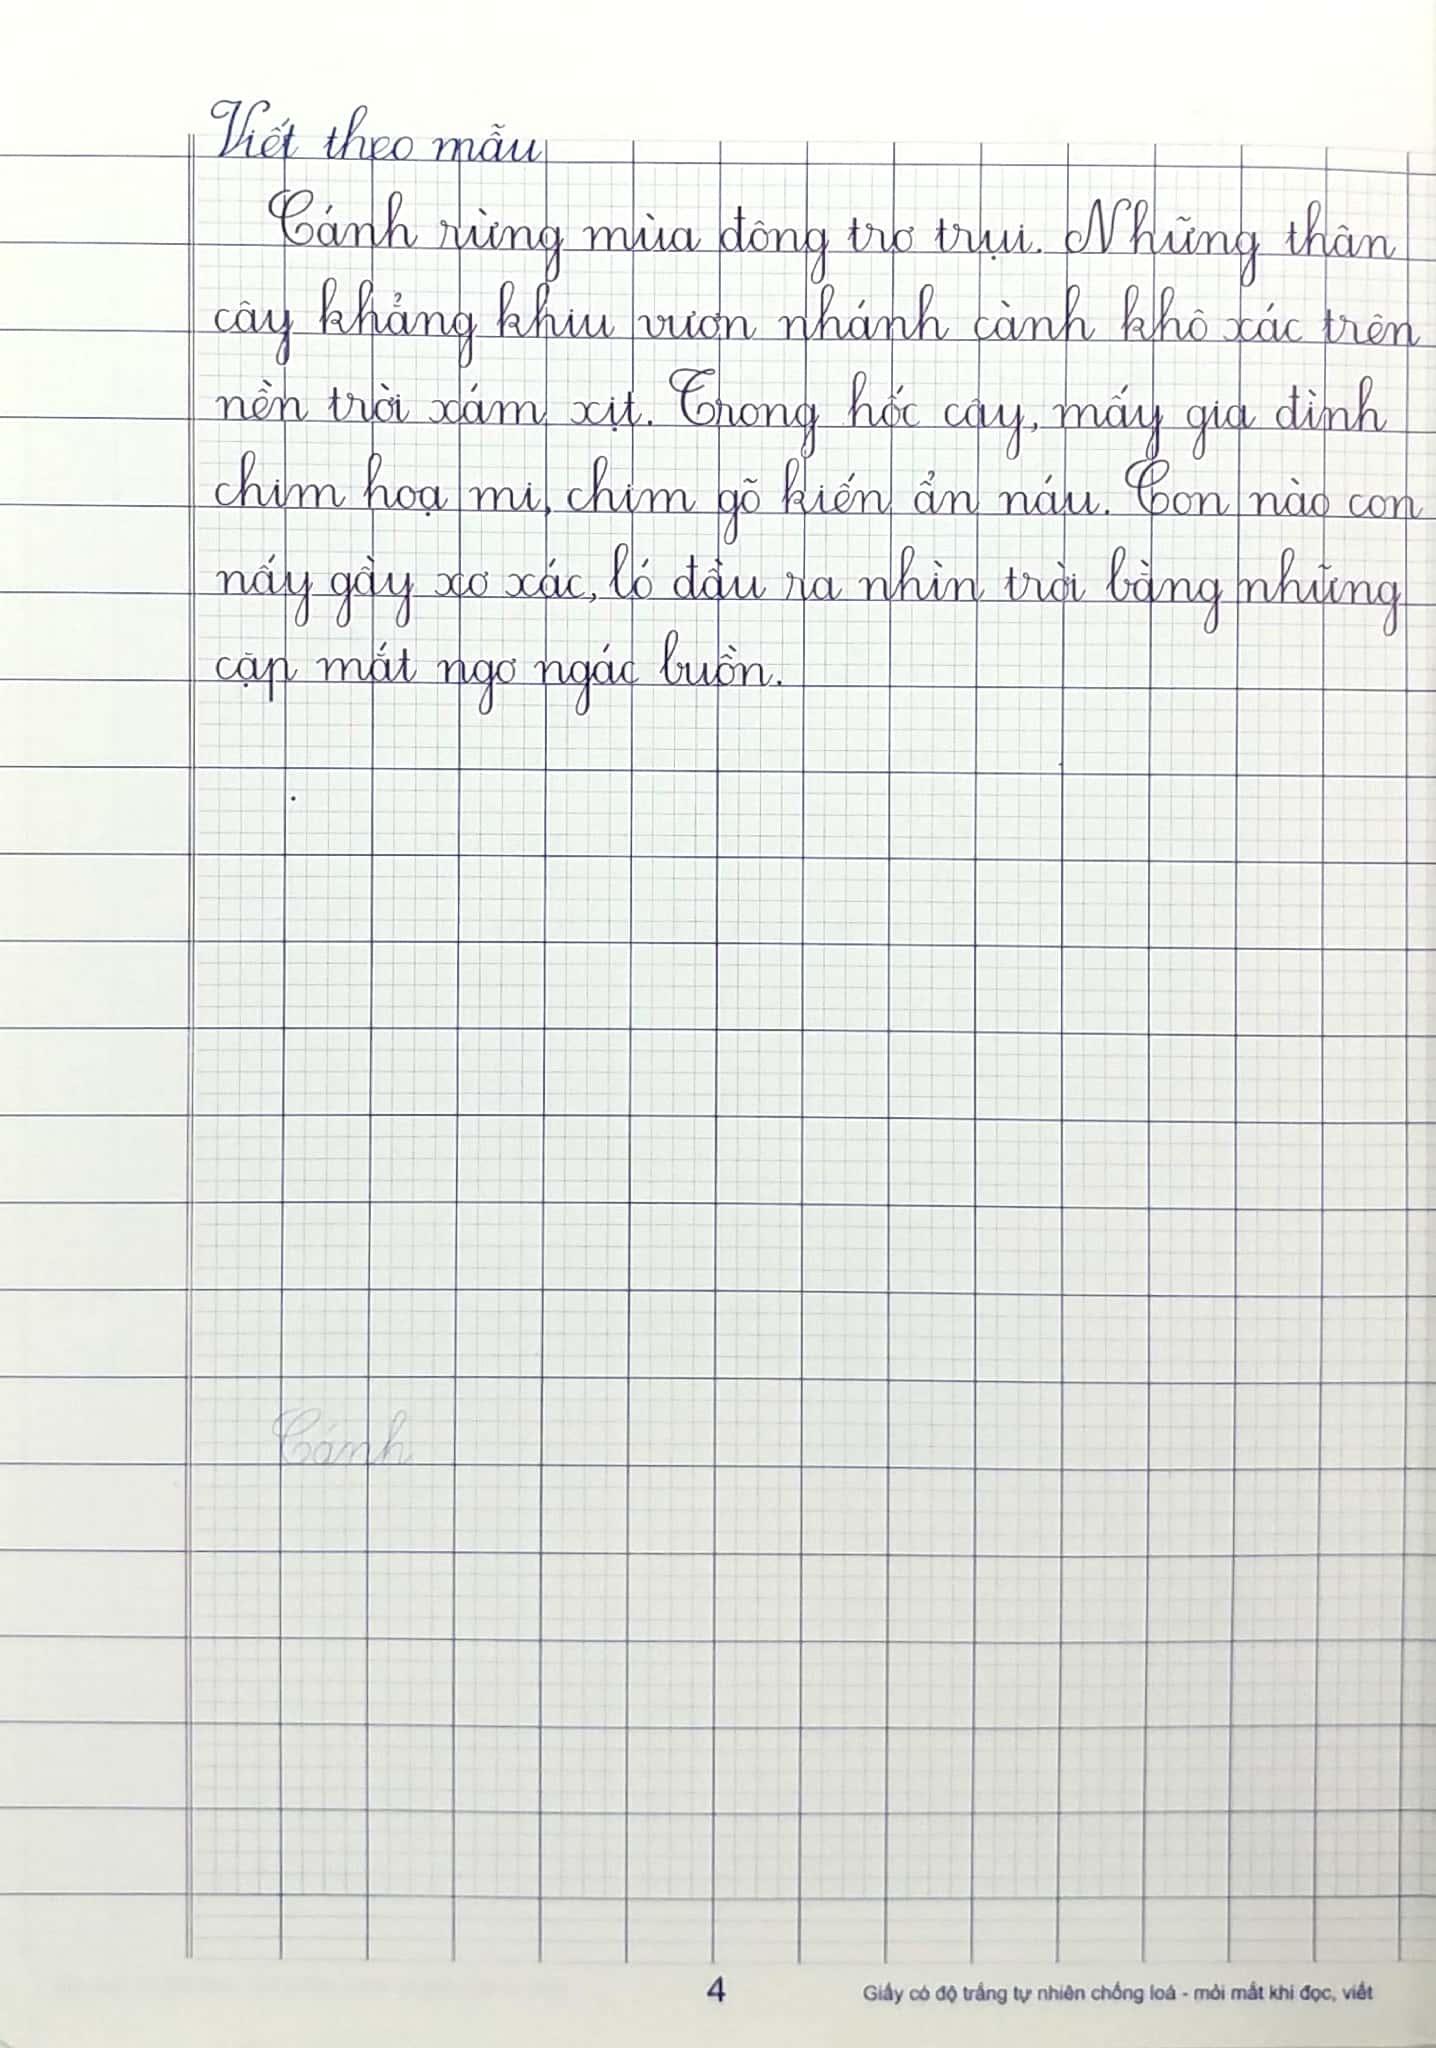 Viết theo mẫu
Cánh rừng mùa đông trơ trụi. Những thân
cây khẳng khiu vươn nhánh cành khô xác trên
nền trời xám xịt. Trong hốc cây, mấy gia đình
chim hoạ mi, chim gõ kiến ẩn náu. Con nào con
nấy gầy xơ xác, ló đầu ra nhìn trời bằng những
cặp mắt ngơ ngác buồn.
Cánh
4
Giấy có độ trắng tự nhiên chống loá - mỏi mắt khi đọc, viết